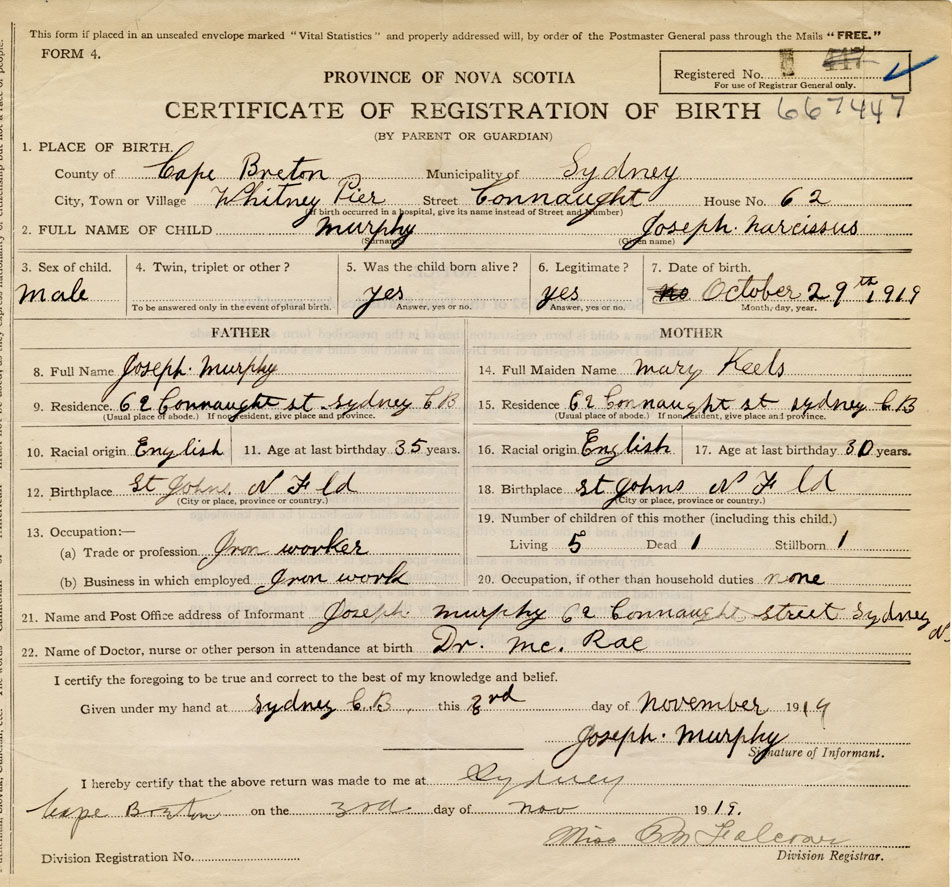 This form if placed in an unsealed envelope marked "Vital Statistics" and properly addressed will, by order of the Postmaster General pass through the Mails "FREE."
FORM 4.
Registered No.
For use of Registrar General only.
PROVINCE OF NOVA SCOTIA
CERTIFICATE OF REGISTRATION OF BIRTH 667447
(BY PARENT OR GUARDIAN)
1. PLACE OF BIRTH.
County of Cape Breton Municipality of Sydney
City, Town or Village Whitney Pier Street Connaught House No. 62
(If birth occurred in a hospital, give its name instead of Street and Number)
2. FULL NAME OF CHILD Murphy Joseph. Narcissus
(Surname) (Given name)
3. Sex of child. 4. Twin, triplet or other? 5. Was the child born alive? 6. Legitimate? 7. Date of birth.
Male yes yes October 29th, 1919
To be answered only in the event of plural birth. Answer, yes or no. Answer, yes or no. Month, day, year.
FATHER MOTHER
8. Full Name Joseph. Murphy 14. Full Maiden Name Mary Keels
9. Residence. 62 Connaught st. Sydney C B 15. Residence 62 Connaught st Sydney C.B
(Usual place of abode.) If nonresident, give place and province. (Usual place of abode.) If nonresident, give place and province.
10. Racial origin English 11. Age at last birthday 35 years. 16. Racial origin English 17. Age at last birthday 30 years.
12. Birthplace St Johns. N F ld 18. Birthplace St Johns N F ld
(City or place, province or country.) (City or place, province or country.)
13. Occupation:— 19. Number of children of this mother (including this child.)
(a) Trade or profession Iron worker Living 5 Dead 1 Stillborn 1
(b) Business in which employed Iron work 20. Occupation, if other than household duties none
21. Name and Post Office address of Informant Joseph Murphy 62 Connaught street Sydney
22. Name of Doctor, nurse or other person in attendance at birth Dr. Mc. Rae
I certify the foregoing to be true and correct to the best of my knowledge and belief.
Given under my hand at Sydney C.B. this 3rd day of November 1919
Joseph. Murphy
Signature of Informant.
I hereby certify that the above return was made to me at Sydney
Cape Breton on the 3rd day of Nov 1919.
Miss
Division Registration No. Division Registrar.